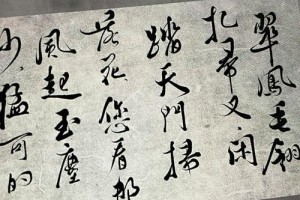 翠鳳毛翎
扎帚叉闲
踏天門掃
落花您看那
風起玉塵
沙猛可的